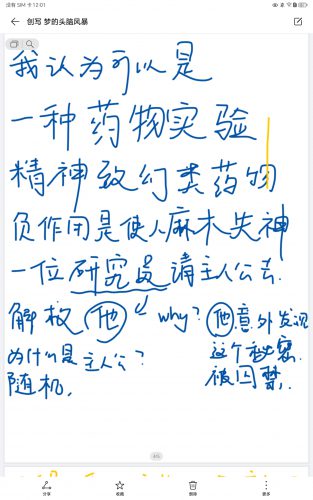 没有 SIM 卡 12:01
创写 梦的头脑风暴
我认为可以是
一种药物实验
精神致幻类药物
负作用是使人麻木失神
一位研究员请主人公去
解救他 why? 他意外发现
为什么是主人公? 这个秘密
随机, 被囚禁.
4/5
分享 收藏 删除 更多